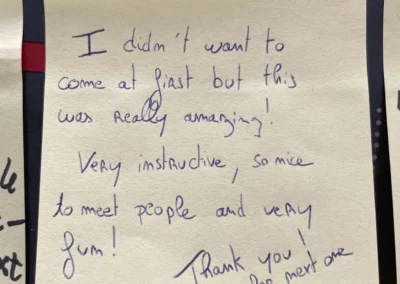 I didn't want to
come at first but this
was really amazing!
Very instructive, so nice
to meet people and very
fum!
Thank you!
next one